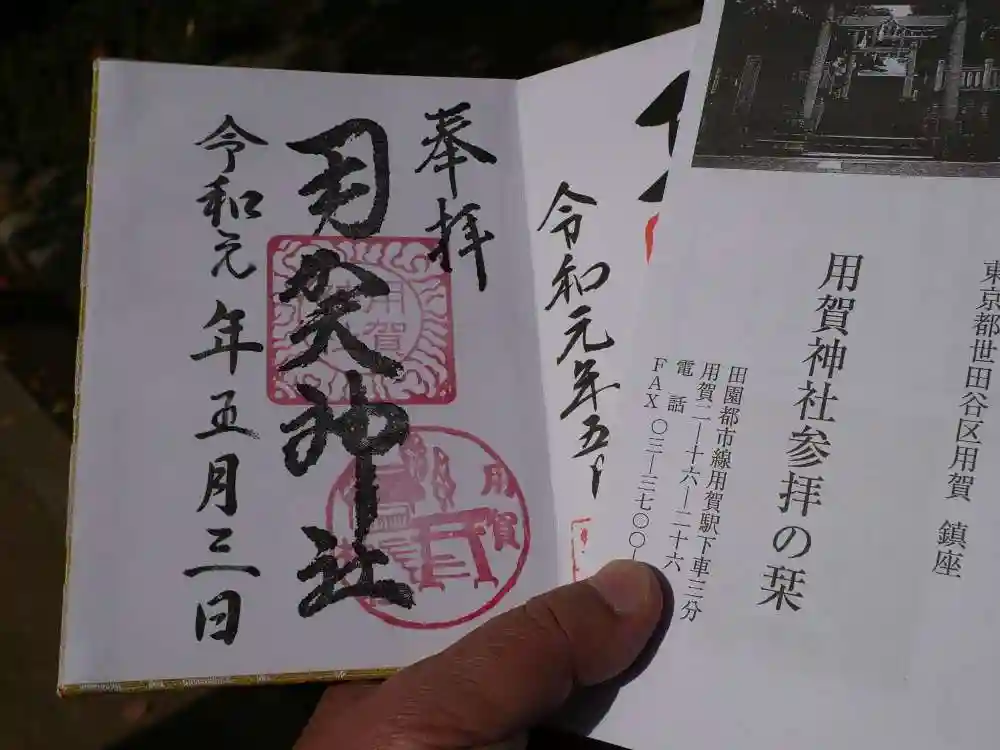 奉拝
用賀神社
令和元年五月三日
用賀
用賀
令和元年五
東京都世田谷区用賀 鎮座
用賀神社参拝の栞
田園都市線用賀駅下車三分
用賀二ー十六ー二十六
電話
FAX 〇三ー三七〇〇ー